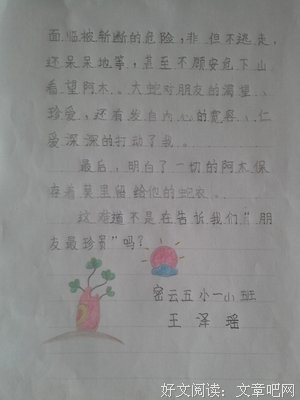 面临被斩断的危险,非但不逃走,
还呆呆地等,甚至不顾安危下山
看望阿木。大蛇对朋友的渴望、
珍爱,还有发自内心的宽容、仁
爱深深的打动了我。
最后,明白了一切的阿木保
存着莫里留给他的蛇衣。
这难道不是在告诉我们“朋
友最珍贵”吗?
密云五小一小班
王泽瑶
好文阅读:文章吧网